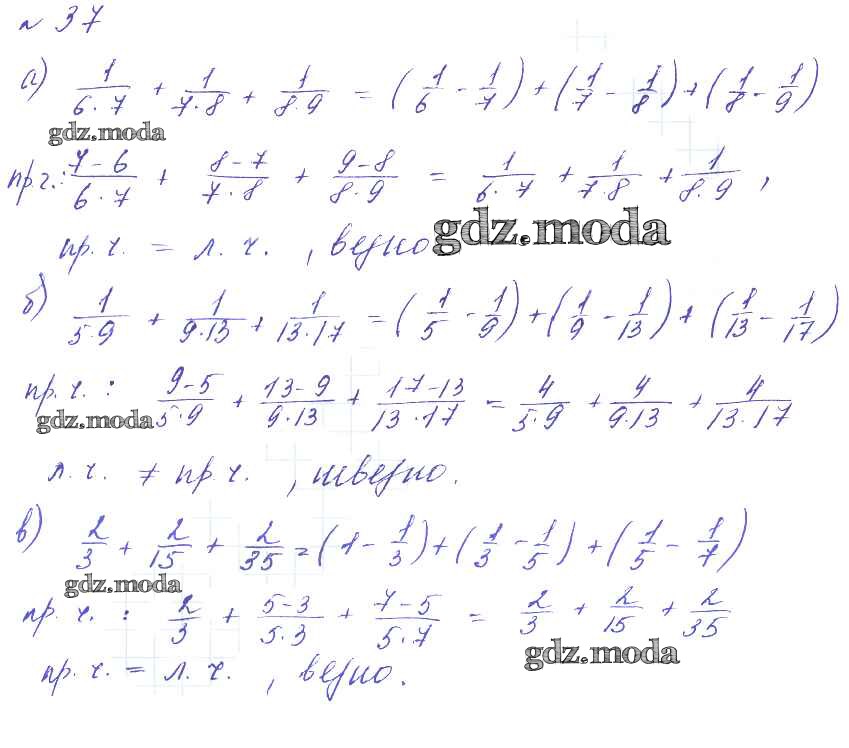 № 37
а) 1/(6·7) + 1/(7·8) + 1/(8·9) = (1/6 - 1/7) + (1/7 - 1/8) + (1/8 - 1/9)
gdz.moda
пр.ч.: (7-6)/(6·7) + (8-7)/(7·8) + (9-8)/(8·9) = 1/(6·7) + 1/(7·8) + 1/(8·9),
пр.ч. = л.ч., верно
gdz.moda
б) 1/(5·9) + 1/(9·13) + 1/(13·17) = (1/5 - 1/9) + (1/9 - 1/13) + (1/13 - 1/17)
пр.ч.: (9-5)/(5·9) + (13-9)/(9·13) + (17-13)/(13·17) = 4/(5·9) + 4/(9·13) + 4/(13·17)
gdz.moda
л.ч. ≠ пр.ч., неверно.
в) 2/3 + 2/15 + 2/35 = (1 - 1/3) + (1/3 - 1/5) + (1/5 - 1/7)
gdz.moda
пр.ч.: 2/3 + (5-3)/(5·3) + (7-5)/(5·7) = 2/3 + 2/15 + 2/35
gdz.moda
пр.ч. = л.ч., верно.